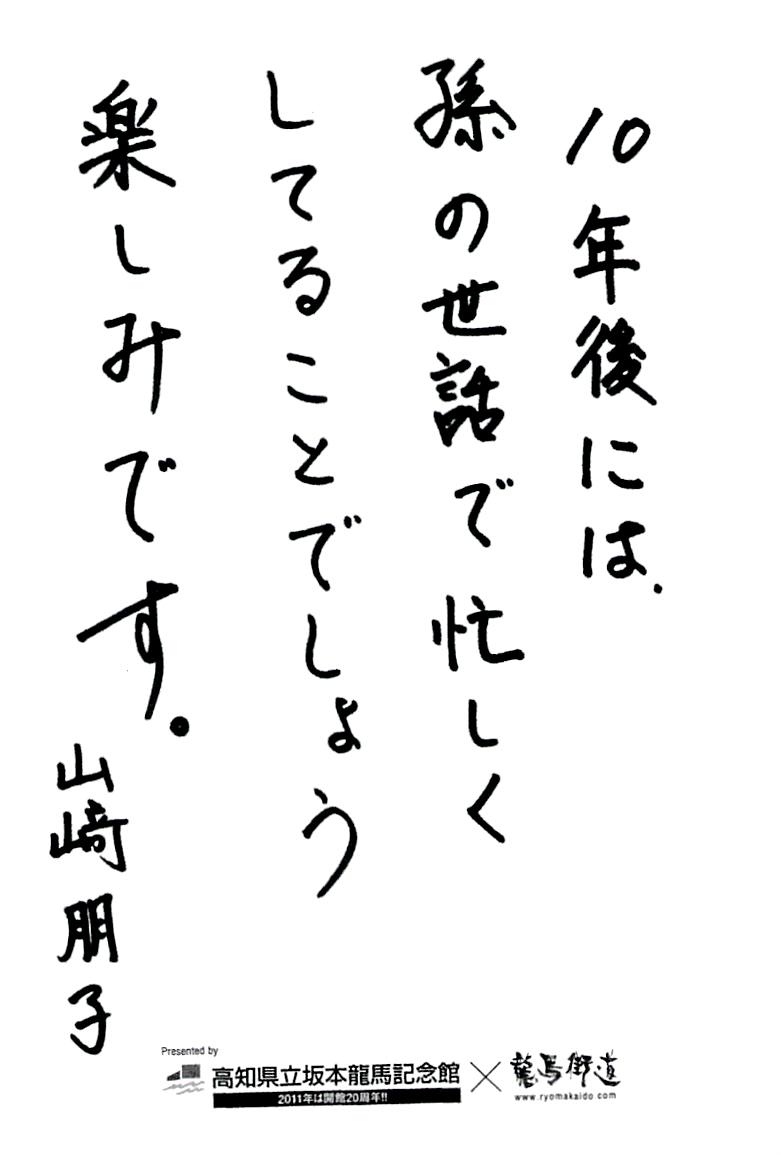 10年後には、
孫の世話で忙しく
してることでしょう
楽しみです。
山﨑朋子
Presented by
高知県立坂本龍馬記念館
2011年は開館20周年!!
×
龍馬街道
www.ryomakaido.com